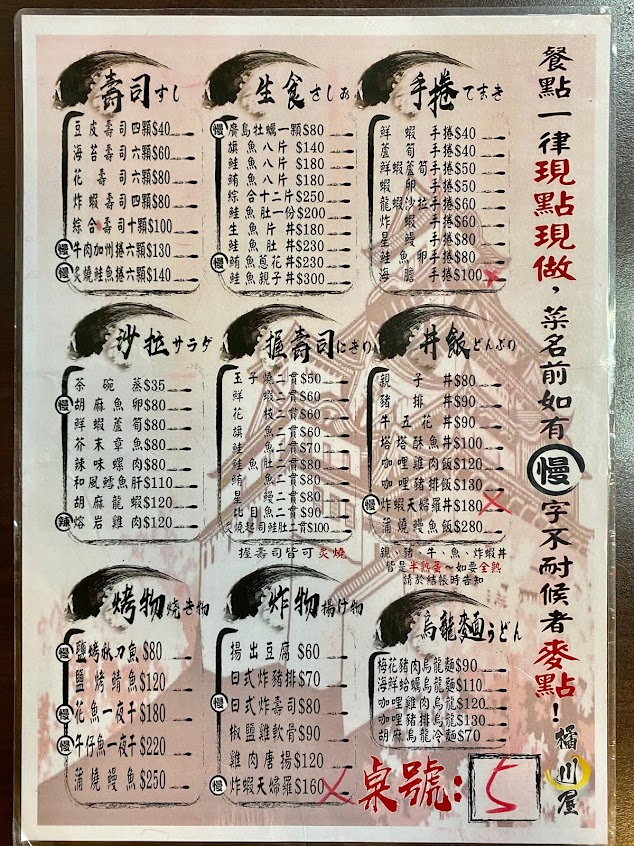 壽司すし
豆皮壽司四顆$40
海苔壽司六顆$60
花壽司六顆$50
炸蝦壽司四顆$80
綜合壽司十顆$100
慢 牛肉加州捲六顆$130
慢 炙燒鮭魚捲六顆$140
生食さしみ
慢 廣島牡蠣一顆$80
旗魚八片$140
鮭魚八片$180
鮪魚八片$180
綜合十二片$250
鮭魚肚一份$200
生魚片丼$180
鮭魚肚丼$230
慢 鮪魚蔥花丼$230
鮭魚親子丼$300
手捲てまき
鮮蝦手捲$40
蘆筍手捲$40
鮮蝦蘆筍手捲$50
蝦卵手捲$50
龍蝦沙拉手捲$60
炸蝦手捲$60
星鰻手捲$80
鮭魚卵手捲$80
海膽手捲$100
沙拉サラダ
茶碗蒸$35
慢 胡麻魚卵$80
鮮蝦蘆筍$80
芥末章魚$80
辣味螺肉$80
和風鱈魚肝$110
胡麻龍蝦$120
辣 熔岩雞肉$120
握壽司にぎり
玉子燒二貫$50
鮮蝦二貫$60
花枝二貫$60
旗魚二貫$60
鮭魚二貫$70
鮭魚肚二貫$80
鮪魚二貫$80
星鰻二貫$80
比目魚二貫$90
炙燒起司鮭肚二貫$100
握壽司皆可炙燒
丼飯どんぶり
親子丼$80
豬排丼$90
牛五花丼$90
塔塔酥魚丼$100
咖哩雞肉飯$120
咖哩豬排飯$130
慢 炸蝦天婦羅丼$180
蒲燒鰻魚飯$280
親、豬、牛、魚、炸蝦丼
皆是半熟蛋~如要全熟
請於結帳時告知
烤物焼き物
慢 鹽烤秋刀魚$80
鹽烤鯖魚$120
慢 花魚一夜干$180
慢 午仔魚一夜干$220
蒲燒鰻魚$250
炸物揚げ物
揚出豆腐$60
日式炸豬排$70
慢 日式炸壽司$80
椒鹽雞軟骨$90
雞肉唐揚$120
慢 炸蝦天婦羅$160
烏龍麵うどん
梅花豬肉烏龍麵$90
海鮮蛤蠣烏龍麵$110
咖哩雞肉烏龍$120
咖哩豬排烏龍$130
胡麻烏龍冷麵$70
桌號:5
餐點一律現點現做,菜名前如有慢字不耐候者麥點!
橘川屋